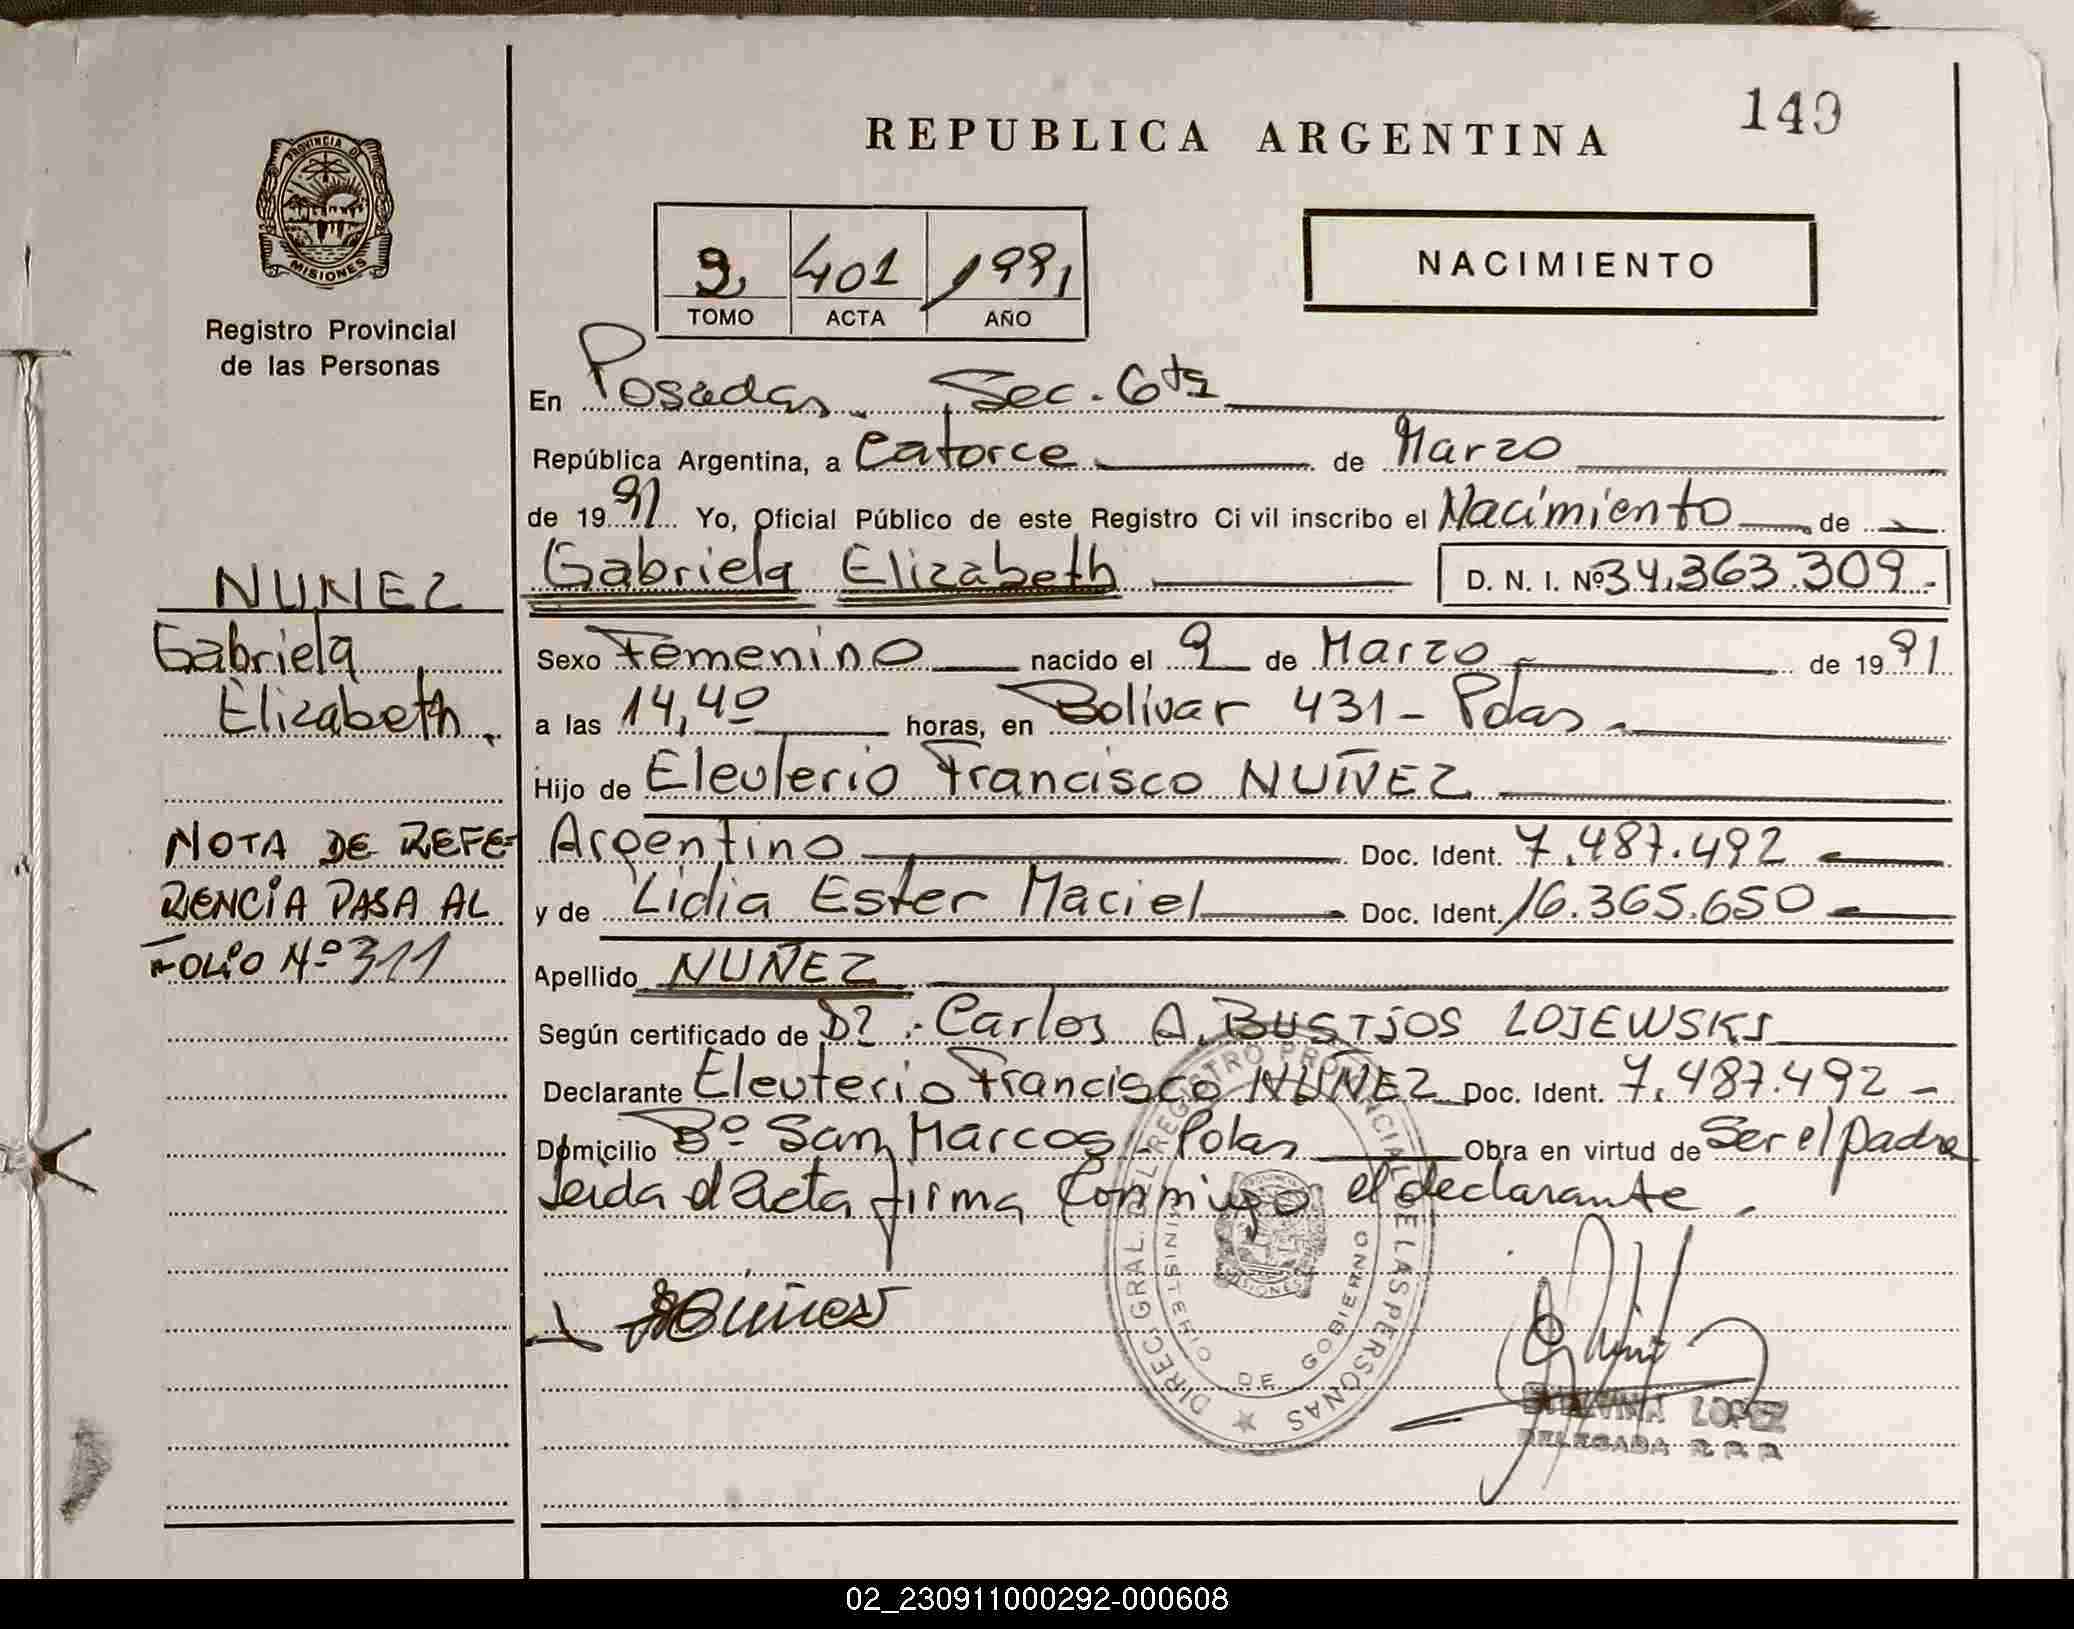 149
REPUBLICA ARGENTINA
PROVINCIA DE
MISIONES
Registro Provincial
de las Personas
NACIMIENTO
401 1991
TOMO ACTA AÑO
En Posadas. Sec. 6ta
República Argentina, a Catorce de Marzo
de 1991 Yo, Oficial Público de este Registro Civil inscribo el Nacimiento de
Gabriela Elizabeth D. N. I. Nº 34.363.309.-
Sexo Femenino nacido el 9 de Marzo de 1991
a las 14,40 horas, en Bolivar 431 - Pdas.
Hijo de Eleuterio Francisco NUÑEZ
Argentino Doc. Ident. 7.487.492
y de Lidia Ester Maciel Doc. Ident. 16.365.650
Apellido NUÑEZ
Según certificado de Carlos A. BUSTJOS LOJEWSKI
Declarante Eleuterio Francisco NUÑEZ Doc. Ident. 7.487.492 -
Domicilio Bº San Marcos - Pdas Obra en virtud de Ser el padre
Leida el Acta firma Conmigo el declarante.
NUNEZ
Gabriela
Elizabeth.
NOTA DE REFE-
RENCIA PASA AL
FOLIO Nº 311
DIREC. GRAL. DEL REGISTRO PROVINCIAL DE LAS PERSONAS
MINISTERIO DE GOBIERNO
MISIONES
LOPEZ
DELEGADA R.P.P.
02_230911000292-000608